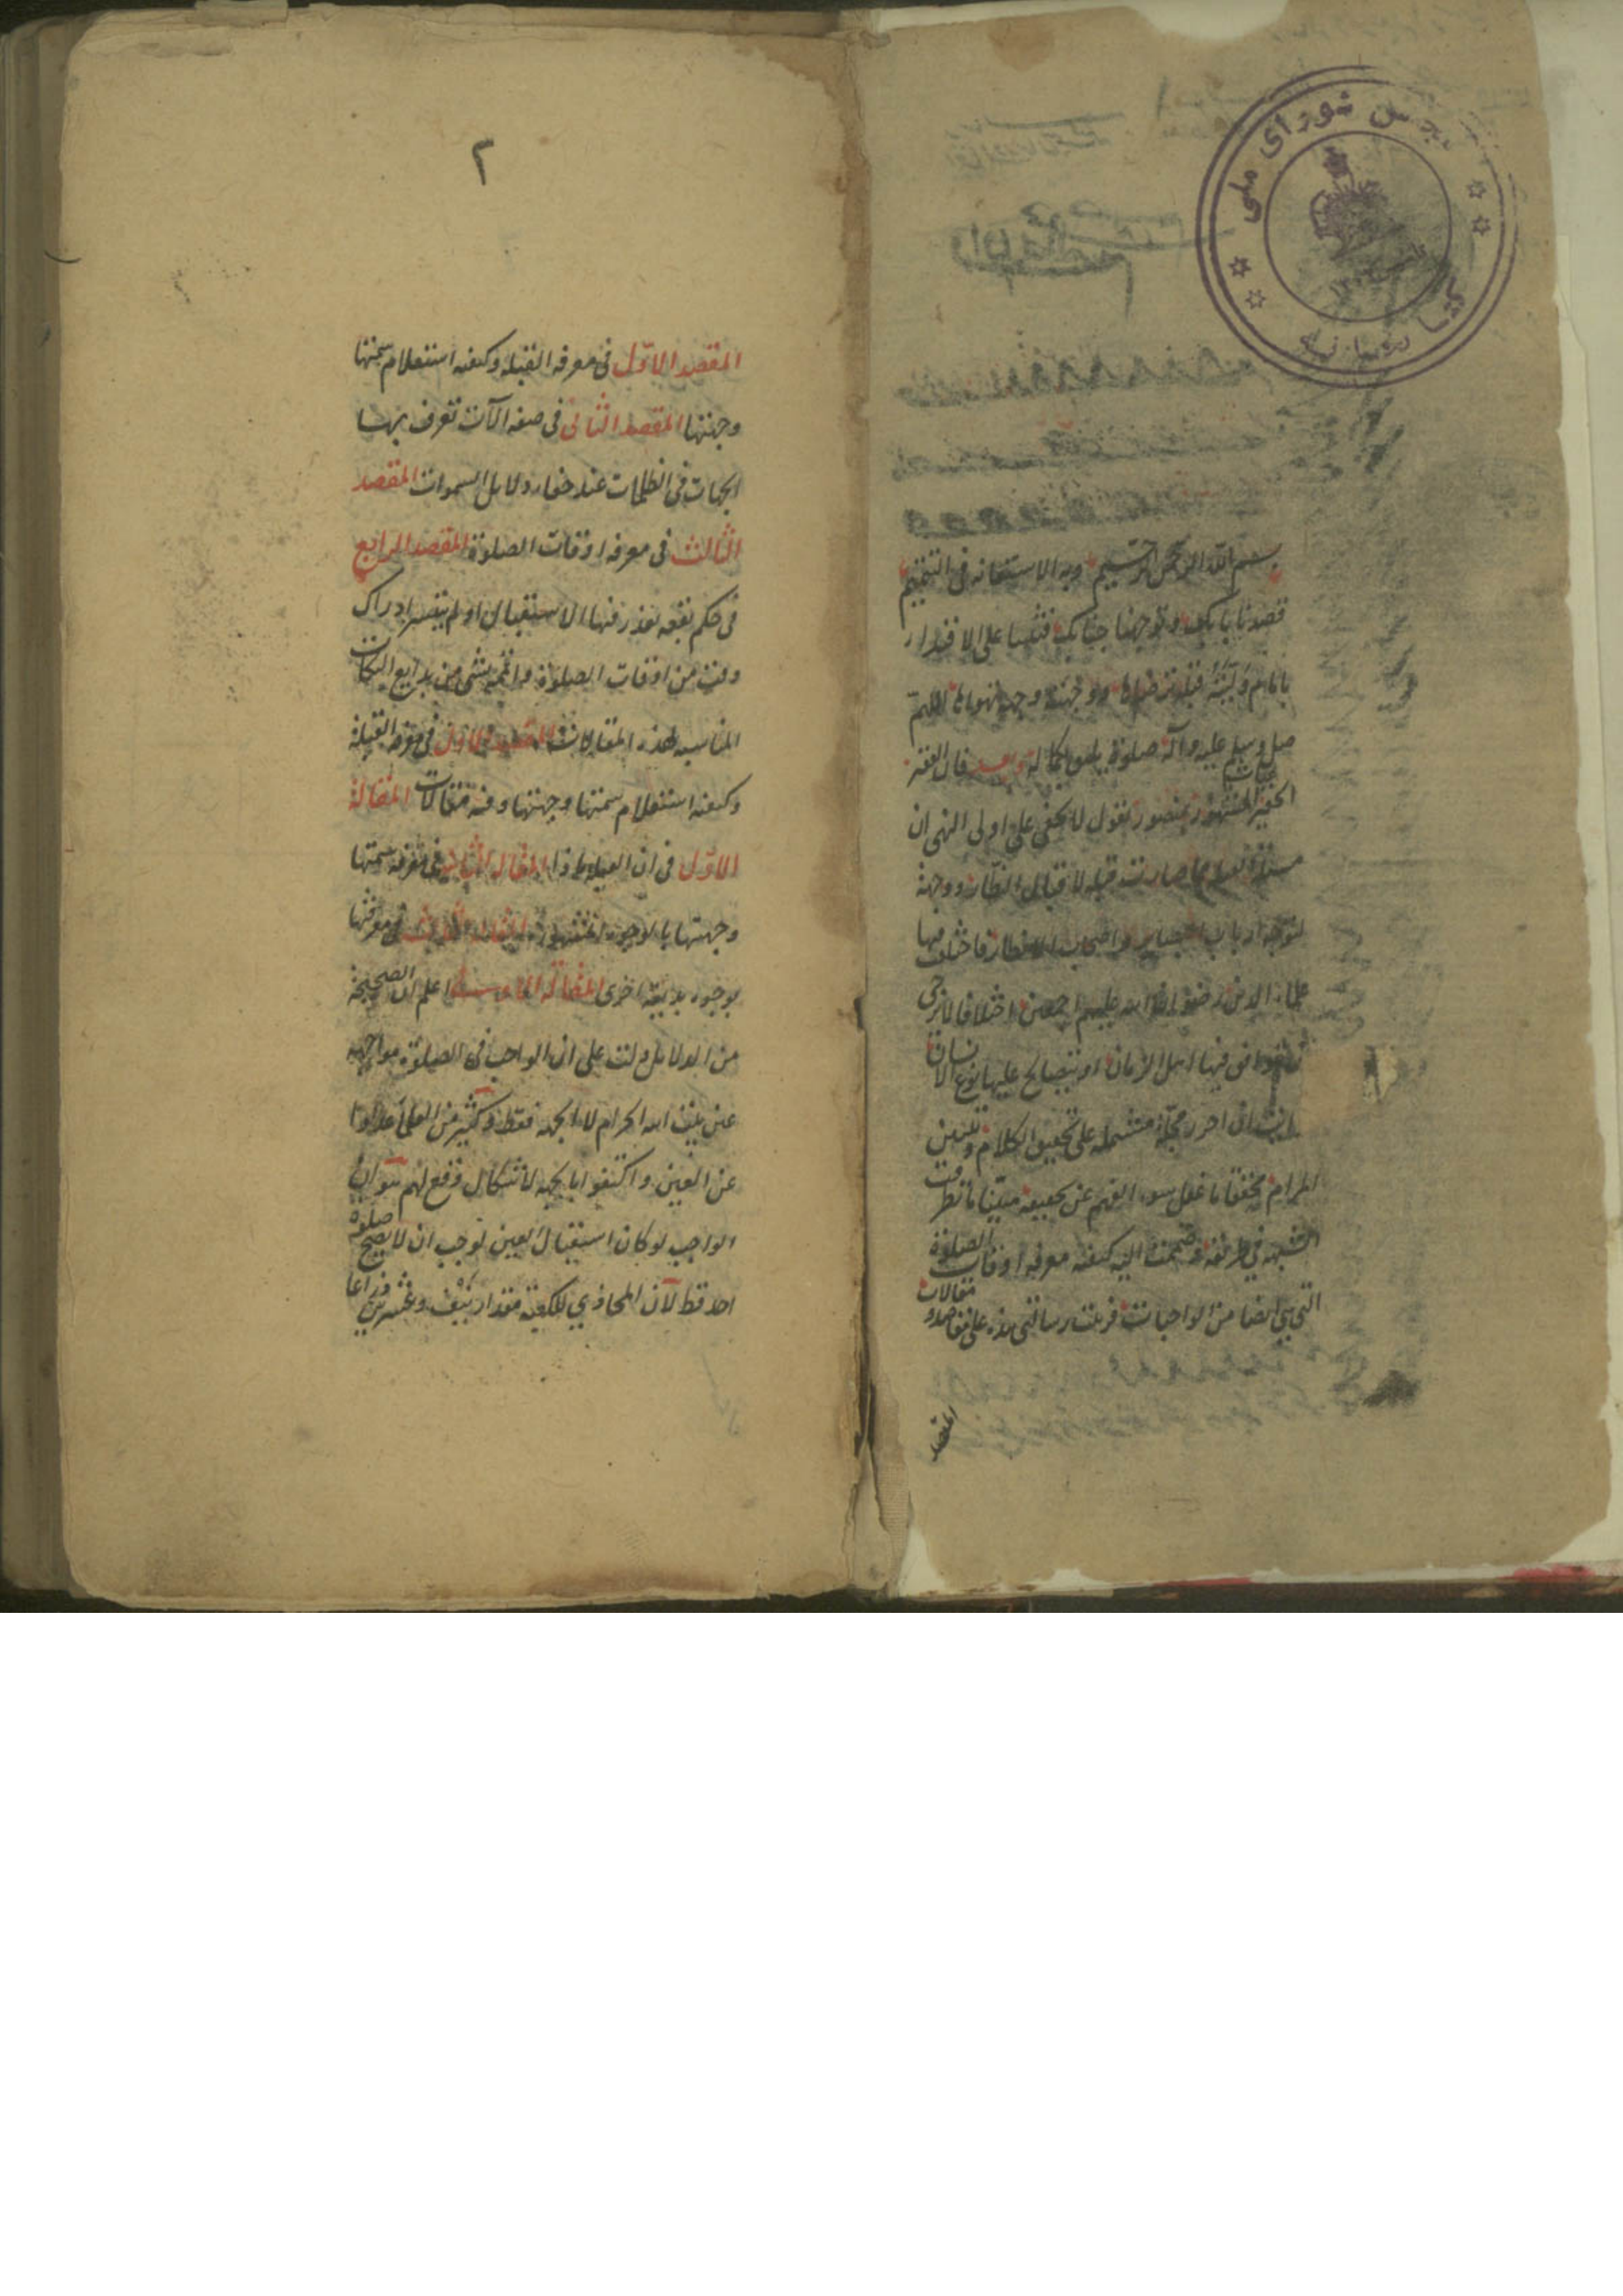 مجلس شورای ملی
بسم الله الرحمن الرحيم وبه الاستعانة فى التتميم
قصدنا بابك وتوجهنا جنابك فثبتنا على الاقتدار
صل وسلم عليه وآله صلوة يليق بكماله وبعد فان الفقير
الحقير المشتهر بغياث المشتهر بمنصور يقول لا يخفى على اولى النهى ان
مسئلة القبلة مما صارت قبلة لاقبال النظار ووجهة
لتوجه ارباب البصاير واصحاب الانظار فاختلف فيها
علماء الدين رضوان الله عليهم اجمعين اختلافا لا يرجى
توافق فيها اهل الزمان او يتصالح عليها نوع الانسان
ان احرر مجلة مشتملة على تحقيق الكلام وتبيين
المرام محققا ما غفل سوء الفهم عن تحقيقه مبينا ما تطرقت
الشبهة فى طريقه وضممت اليه كيفية معرفة اوقات الصلوة
التى هى ايضا من الواجبات فرتبت رسالتى هذه على مقاصد و مقالات
المقصد
٢
المقصد الاول فى معرفة القبلة وكيفية استعلام سمتها
وجهتها المقصد الثانى فى صفة آلات تعرف بها
الجهات فى الظلمات عند خفاء دلايل السموات المقصد
الثالث فى معرفة اوقات الصلوة المقصد الرابع
فى حكم بقعة تعذر فيها الاستقبال او لم يتيسر ادراك
وقت من اوقات الصلوة واتمه بشى من بدايع النكات
المناسبة لهذه المقالات المقصد الاول فى معرفة القبلة
وكيفية استعلام سمتها وجهتها وفيه مقالات المقالة
الاول فى ان القبلة ماذا المقالة الثانية فى معرفة سمتها
وجهتها بالوجوه المشهورة المقالة الثالثة فى معرفتها
بوجوه بديعة اخرى المقالة الاولى اعلم ان الصحيحة
من الدلايل دلت على ان الواجب فى الصلوة مواجهة
عين بيت الله الحرام لا الجهة فقط وكثير من العلماء عدلوا
عن العين واكتفوا بالجهة لاشكال وقع لهم هو ان
الواجب لو كان استقبال العين لوجب ان لا يصح صلوة
احد قط لان المحاذي للكعبة مقدار نيف وعشرين ذراعا